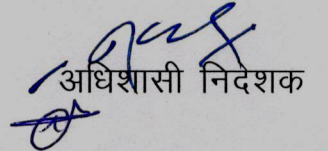 अधिशासी निदेशक